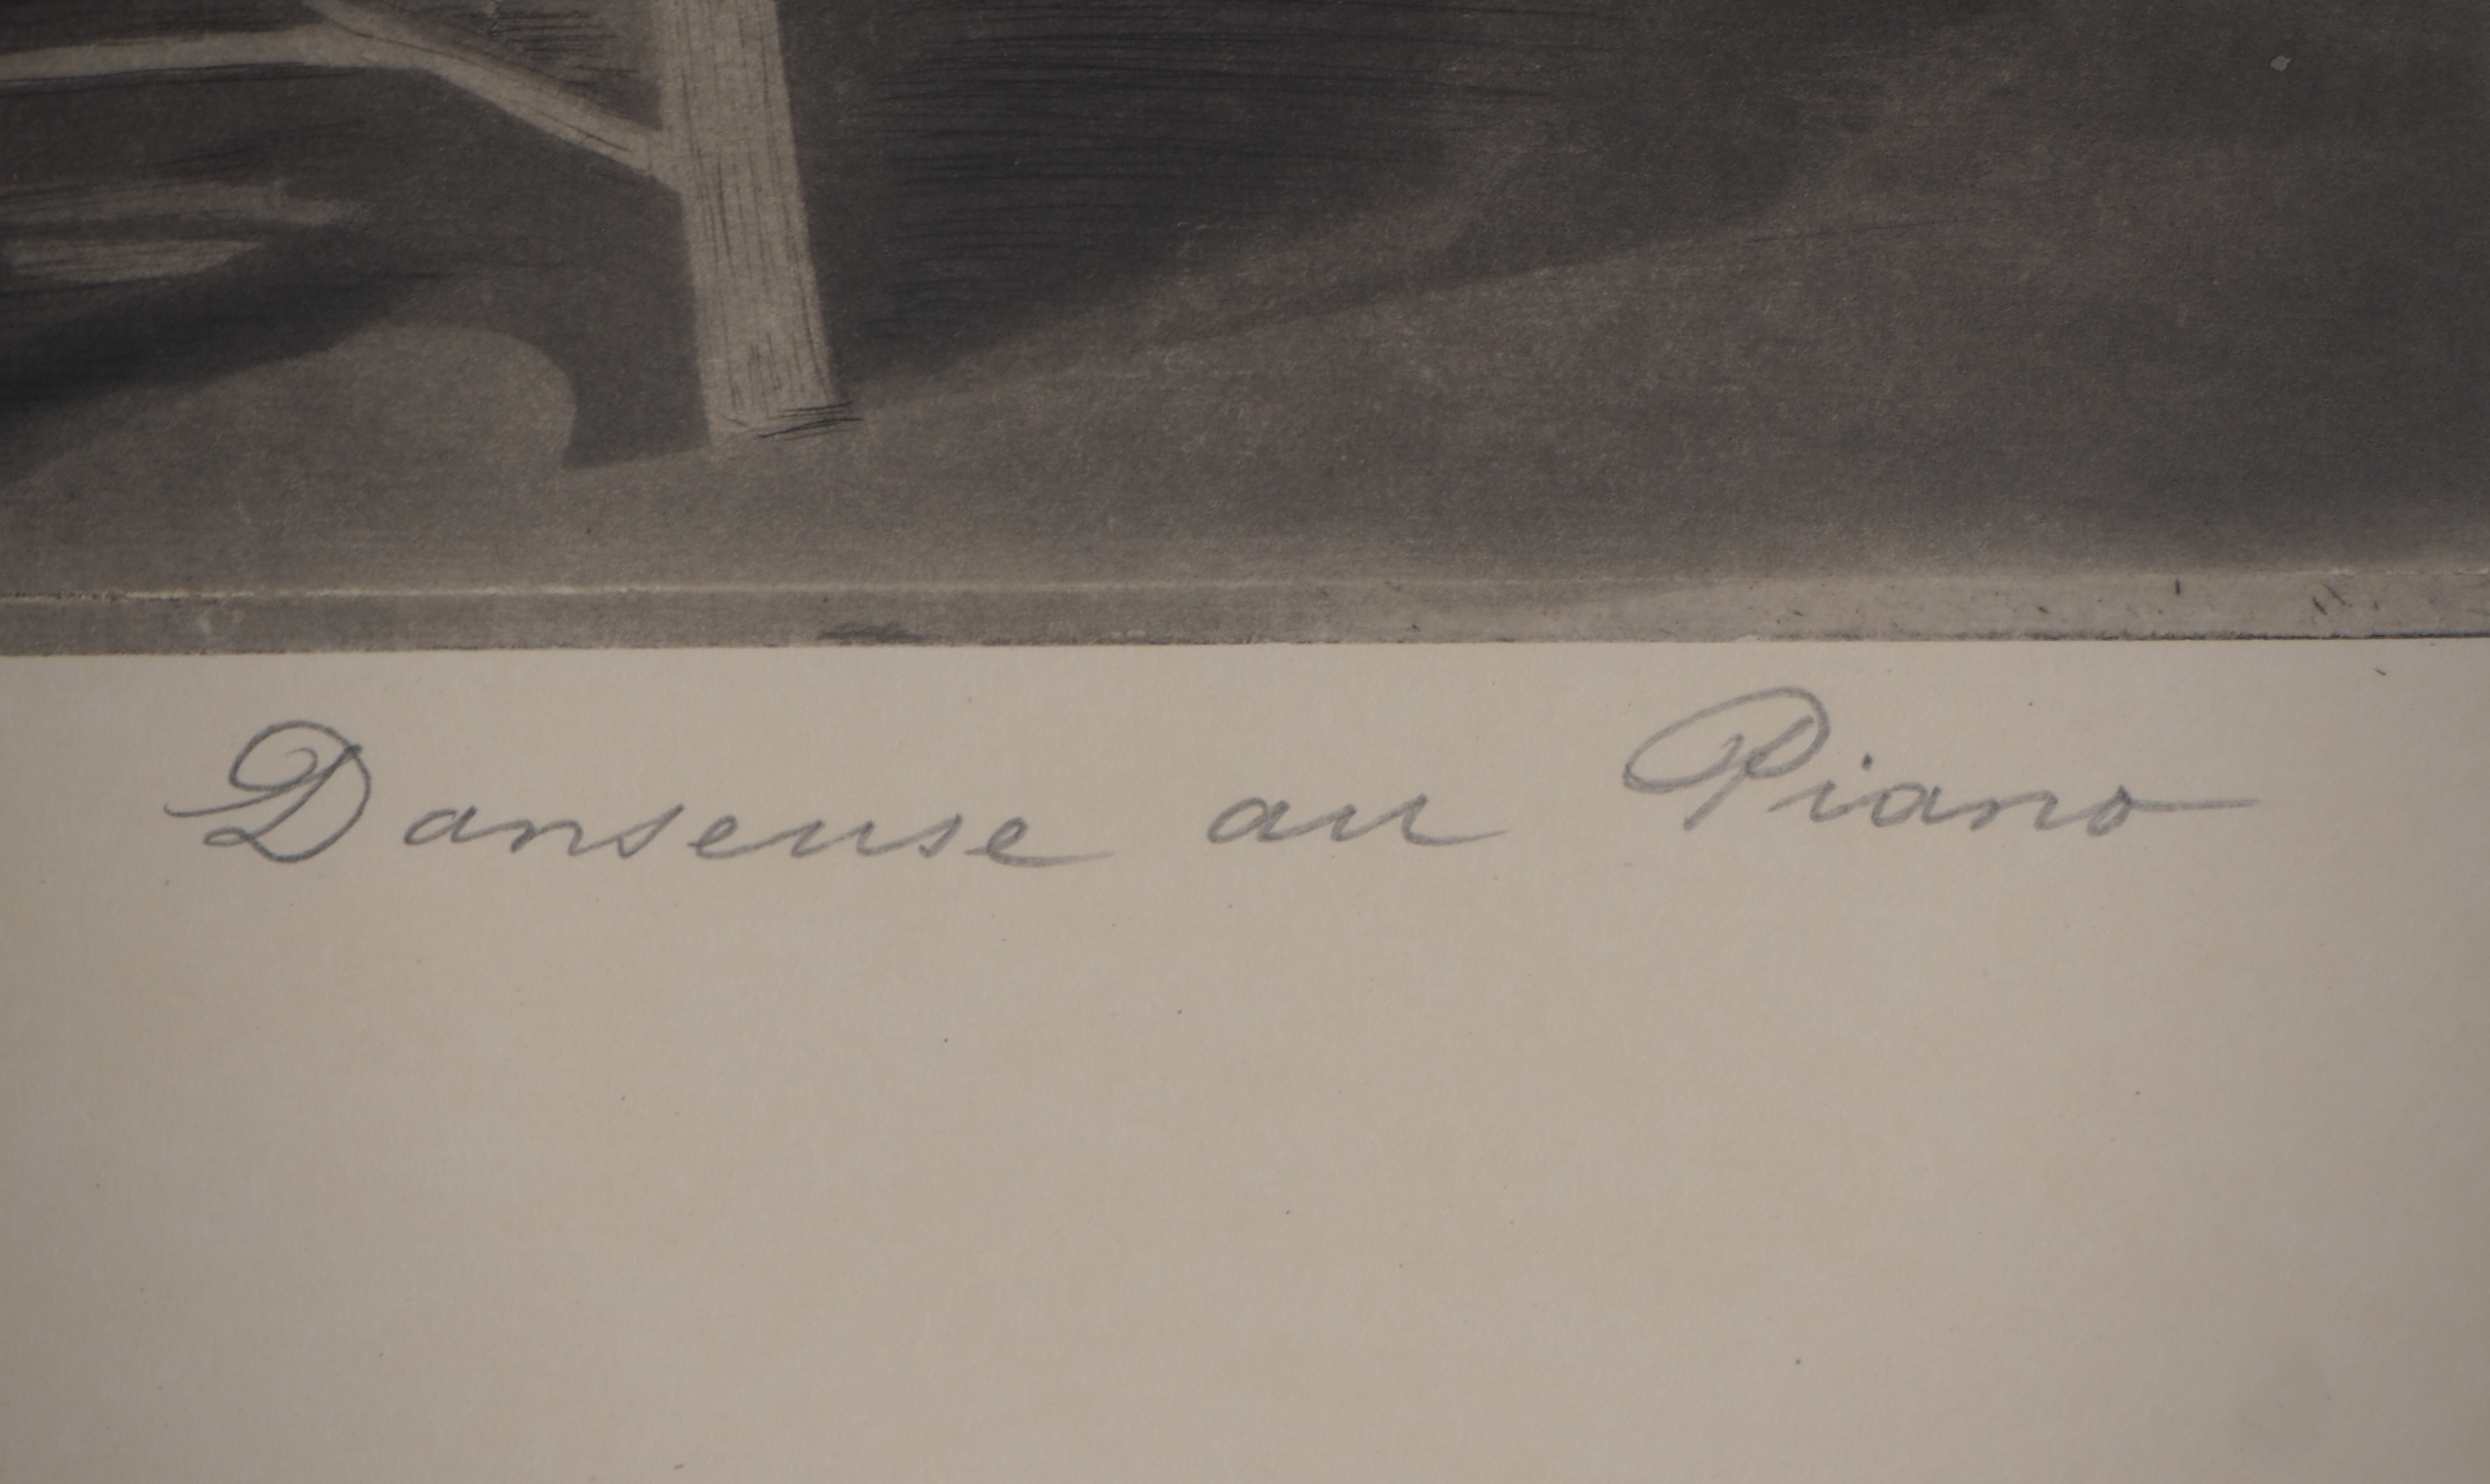 Danseuse au Piano